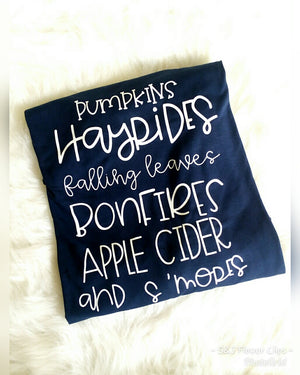 PUMPKINS
HAYRIDES
falling leaves
BONFIRES
APPLE CIDER
AND S'MORES
PhotoGrid